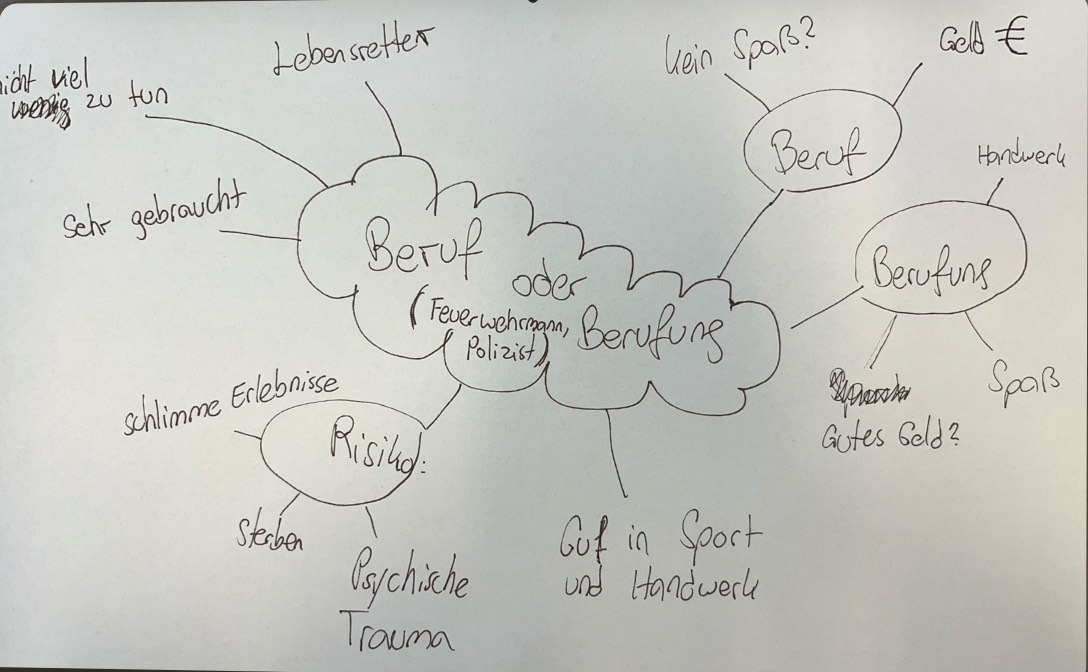 Lebensretter
nicht viel
zu tun
Sehr gebraucht
Beruf
oder
(Feuerwehrmann,
Polizist)
Berufung
kein Spaß?
Geld €
Beruf
Handwerk
Berufung
Gutes Geld?
Spaß
schlimme Erlebnisse
Risiko:
Sterben
Psychische
Trauma
Gut in Sport
und Handwerk